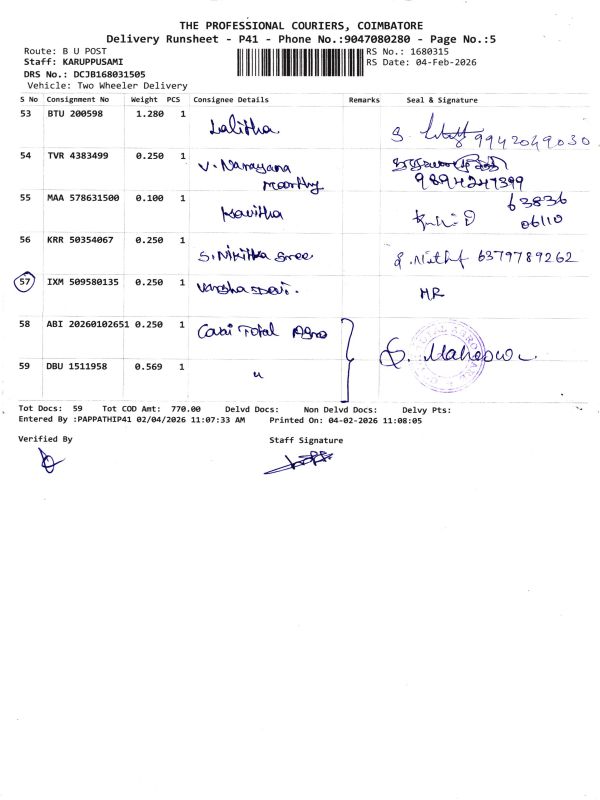 THE PROFESSIONAL COURIERS, COIMBATORE
Delivery Runsheet - P41 - Phone No.:9047080280 - Page No.:5
Route: B U POST RS No.: 1680315
Staff: KARUPPUSAMI RS Date: 04-Feb-2026
DRS No.: DCJB168031505
Vehicle: Two Wheeler Delivery
S No Consignment No Weight PCS Consignee Details Remarks Seal & Signature
53 BTU 200598 1.280 1 Lalitha 9942049030
54 TVR 4383499 0.250 1 V. Narayana
moorthy 9894247399
55 MAA 578631500 0.100 1 Kavitha 63836
06110
56 KRR 50354067 0.250 1 S. Nikitha Sree 6379789262
57 IXM 509580135 0.250 1 Varsha Devi. MR
58 ABI 20260102651 0.250 1 Total Agro
59 DBU 1511958 0.569 1 "
Tot Docs: 59 Tot COD Amt: 770.00 Delvd Docs: Non Delvd Docs: Delvy Pts:
Entered By :PAPPATHIP41 02/04/2026 11:07:33 AM Printed On: 04-02-2026 11:08:05
Verified By Staff Signature